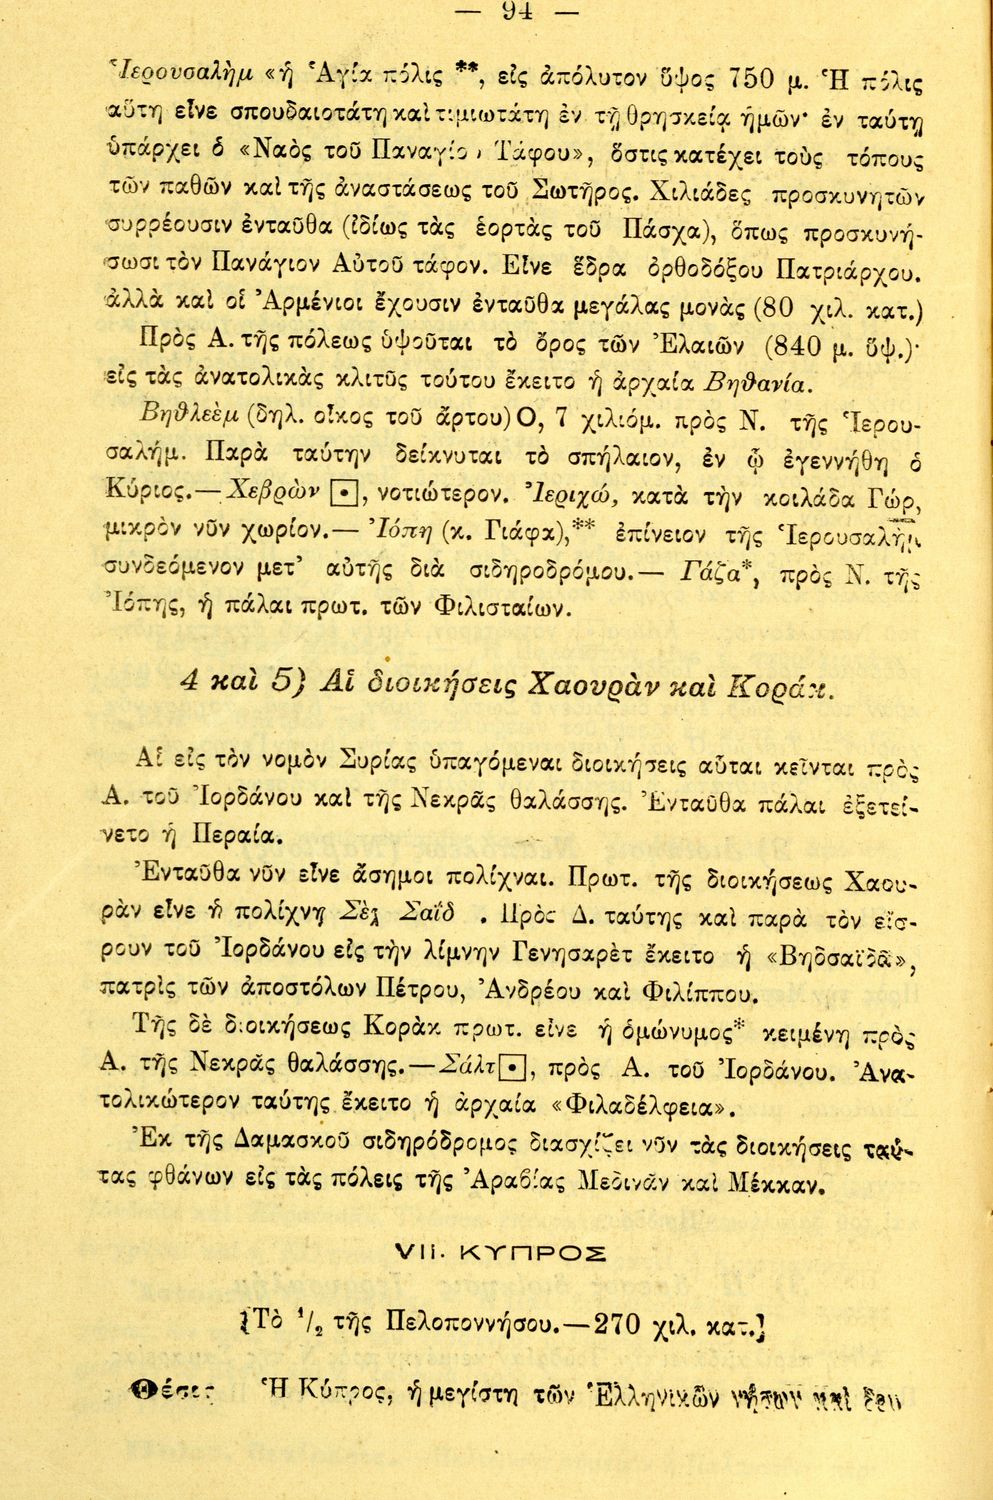 — 94 —
Ἱερουσαλὴμ «ἡ Ἁγία πόλις **, εἰς ἀπόλυτον ὕψος 750 μ. Ἡ πόλις
αὕτη εἶνε σπουδαιοτάτη καὶ τιμιωτάτη ἐν τῇ θρησκείᾳ ἡμῶν· ἐν ταύτῃ
ὑπάρχει ὁ «Ναὸς τοῦ Παναγίου Τάφου», ὅστις κατέχει τοὺς τόπους
τῶν παθῶν καὶ τῆς ἀναστάσεως τοῦ Σωτῆρος. Χιλιάδες προσκυνητῶν
συρρέουσιν ἐνταῦθα (ἰδίως τὰς ἑορτὰς τοῦ Πάσχα), ὅπως προσκυνή-
σωσι τὸν Πανάγιον Αὐτοῦ τάφον. Εἶνε ἕδρα ὀρθοδόξου Πατριάρχου.
ἀλλὰ καὶ οἱ Ἀρμένιοι ἔχουσιν ἐνταῦθα μεγάλας μονὰς (80 χιλ. κατ.)
Πρὸς Α. τῆς πόλεως ὑψοῦται τὸ ὄρος τῶν Ἐλαιῶν (840 μ. ὕψ.)·
εἰς τὰς ἀνατολικὰς κλιτῦς τούτου ἔκειτο ἡ ἀρχαία Βηθανία.
Βηθλεὲμ (δηλ. οἶκος τοῦ ἄρτου) Ο, 7 χιλιόμ. πρὸς Ν. τῆς Ἱερου-
σαλήμ. Παρὰ ταύτην δείκνυται τὸ σπήλαιον, ἐν ᾧ ἐγεννήθη ὁ
Κύριος.— Χεβρὼν ⊡, νοτιώτερον. Ἱεριχώ, κατὰ τὴν κοιλάδα Γώρ,
μικρὸν νῦν χωρίον.— Ἰόπη (κ. Γιάφα),** ἐπίνειον τῆς Ἱερουσαλὴμ
συνδεόμενον μετ' αὐτῆς διὰ σιδηροδρόμου.— Γάζα*, πρὸς Ν. τῆς
Ἰόπης, ἡ πάλαι πρωτ. τῶν Φιλισταίων.
4 καὶ 5) Αἱ διοικήσεις Χαουρὰν καὶ Κοράκ.
Αἱ εἰς τὸν νομὸν Συρίας ὑπαγόμεναι διοικήσεις αὗται κεῖνται πρὸς
Α. τοῦ Ἰορδάνου καὶ τῆς Νεκρᾶς θαλάσσης. Ἐνταῦθα πάλαι ἐξετεί-
νετο ἡ Περαία.
Ἐνταῦθα νῦν εἶνε ἄσημοι πολίχναι. Πρωτ. τῆς διοικήσεως Χαου-
ρὰν εἶνε ἡ πολίχνη Σὲχ Σαῒδ . Πρὸς Δ. ταύτης καὶ παρὰ τὸν εἴσ-
ρουν τοῦ Ἰορδάνου εἰς τὴν λίμνην Γενησαρὲτ ἔκειτο ἡ «Βηδσαϊδᾶ»,
πατρὶς τῶν ἀποστόλων Πέτρου, Ἀνδρέου καὶ Φιλίππου.
Τῆς δὲ διοικήσεως Κορὰκ πρωτ. εἶνε ἡ ὁμώνυμος* κειμένη πρὸς
Α. τῆς Νεκρᾶς θαλάσσης.—Σάλτ ⊡, πρὸς Α. τοῦ Ἰορδάνου. Ἀνα-
τολικώτερον ταύτης ἔκειτο ἡ ἀρχαία «Φιλαδέλφεια».
Ἐκ τῆς Δαμασκοῦ σιδηρόδρομος διασχίζει νῦν τὰς διοικήσεις ταύ-
τας φθάνων εἰς τὰς πόλεις τῆς Ἀραβίας Μεδινᾶν καὶ Μέκκαν.
VII. ΚΥΠΡΟΣ
[Τὸ 1/2 τῆς Πελοποννήσου.—270 χιλ. κατ.]
Θέσις Ἡ Κύπρος, ἡ μεγίστη τῶν Ἑλληνικῶν νήσων καὶ